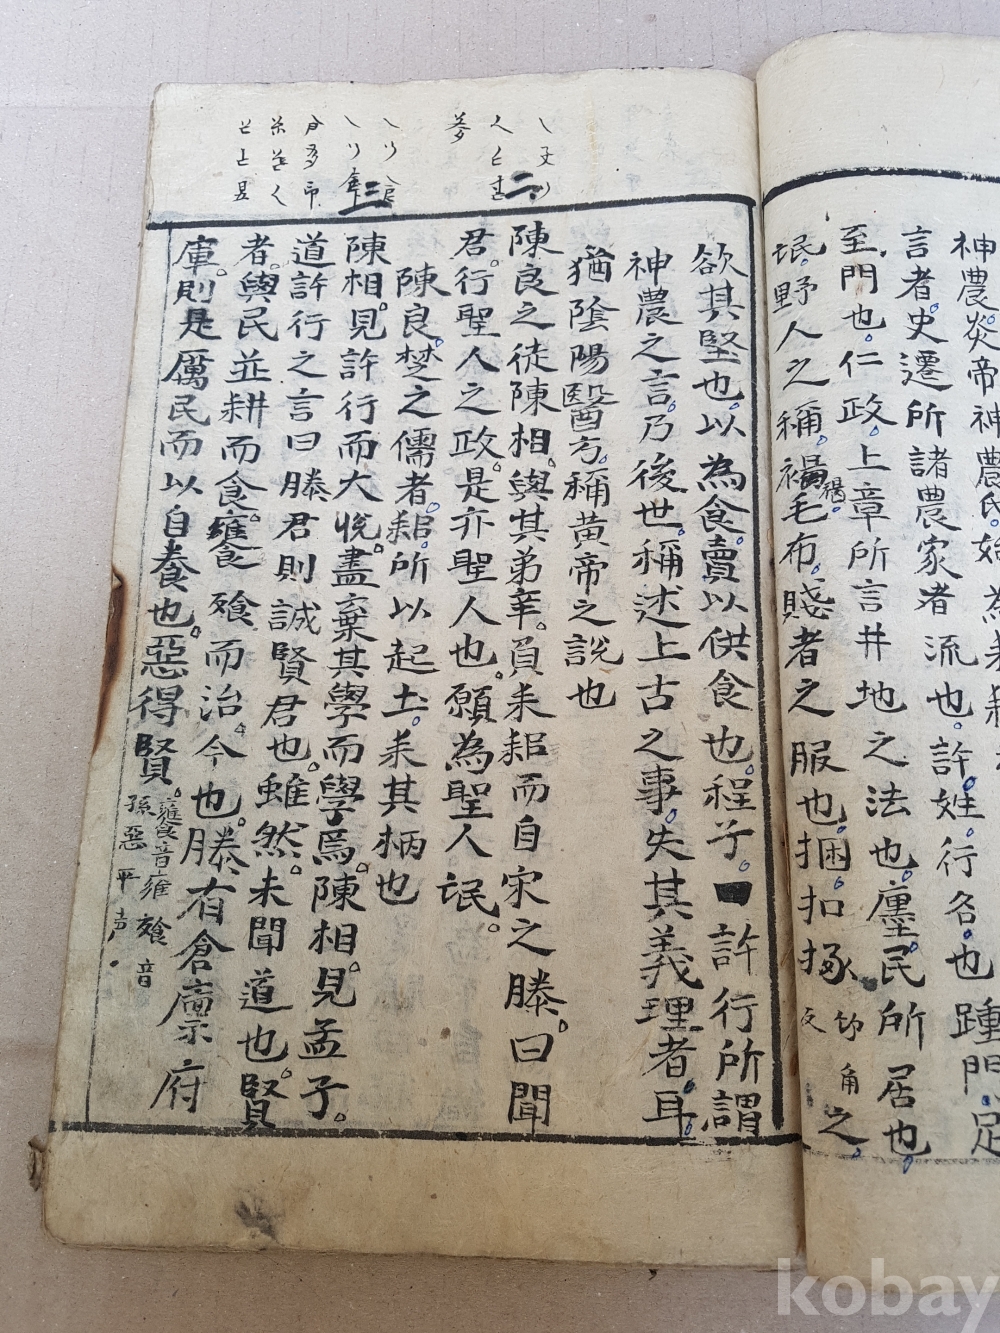 神農炎帝神農氏始為耒耜
言者史遷所諸農家者流也許姓行名也踵門足
至門也仁政上章所言井地之法也廛民所居也
氓野人之稱褐毛布賤者之服也捆扣㧻之
欲其堅也以為食賣以供食也程子曰許行所謂
神農之言乃後世稱述上古之事失其義理者耳
猶陰陽醫方稱黃帝之說也
陳良之徒陳相與其弟辛負耒耜而自宋之滕曰聞
君行聖人之政是亦聖人也願為聖人氓
陳良楚之儒者耜所以起土耒其柄也
陳相見許行而大悅盡棄其學而學焉陳相見孟子
道許行之言曰滕君則誠賢君也雖然未聞道也賢
者與民並耕而食饔飧而治今也滕有倉廩府
庫則是厲民而以自養也惡得賢
饔音雍飧音
孫惡平声
二
三
kobay